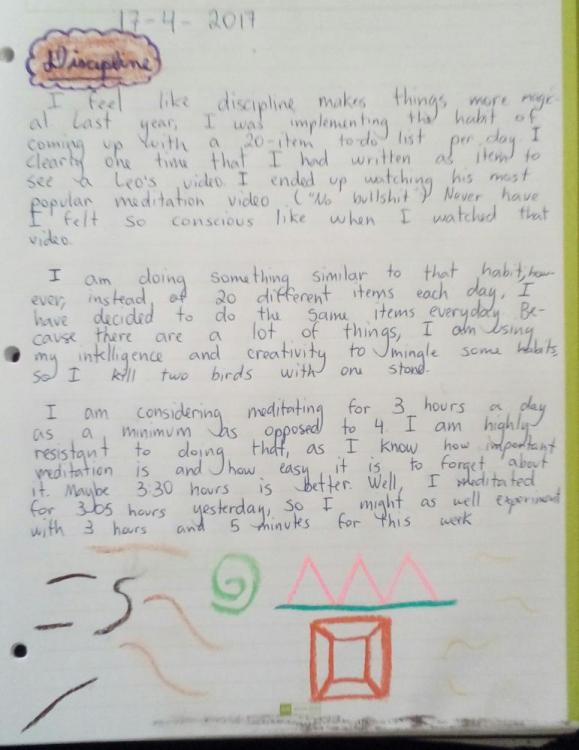 17-4-2017
Discipline
I feel like discipline makes things more magic-
al. Last year, I was implementing the habit of
coming up with a 20-item to-do list per day. I
clearly one time that I had written as item to
see a Leo's video. I ended up watching his most
popular meditation video. ("No bullshit") Never have
I felt so conscious like when I watched that
video.
I am doing something similar to that habit; how-
ever, instead of 20 different items each day, I
have decided to do the same items everyday. Be-
cause there are a lot of things, I am using
my intelligence and creativity to mingle some habits,
so I kill two birds with one stone.
I am considering meditating for 3 hours a day
as a minimum as opposed to 4. I am highly
resistant to doing that, as I know how important
meditation is and how easy it is to forget about
it. Maybe 3:30 hours is better. Well, I meditated
for 3:05 hours yesterday, so I might as well experiment
with 3 hours and 5 minutes for this week